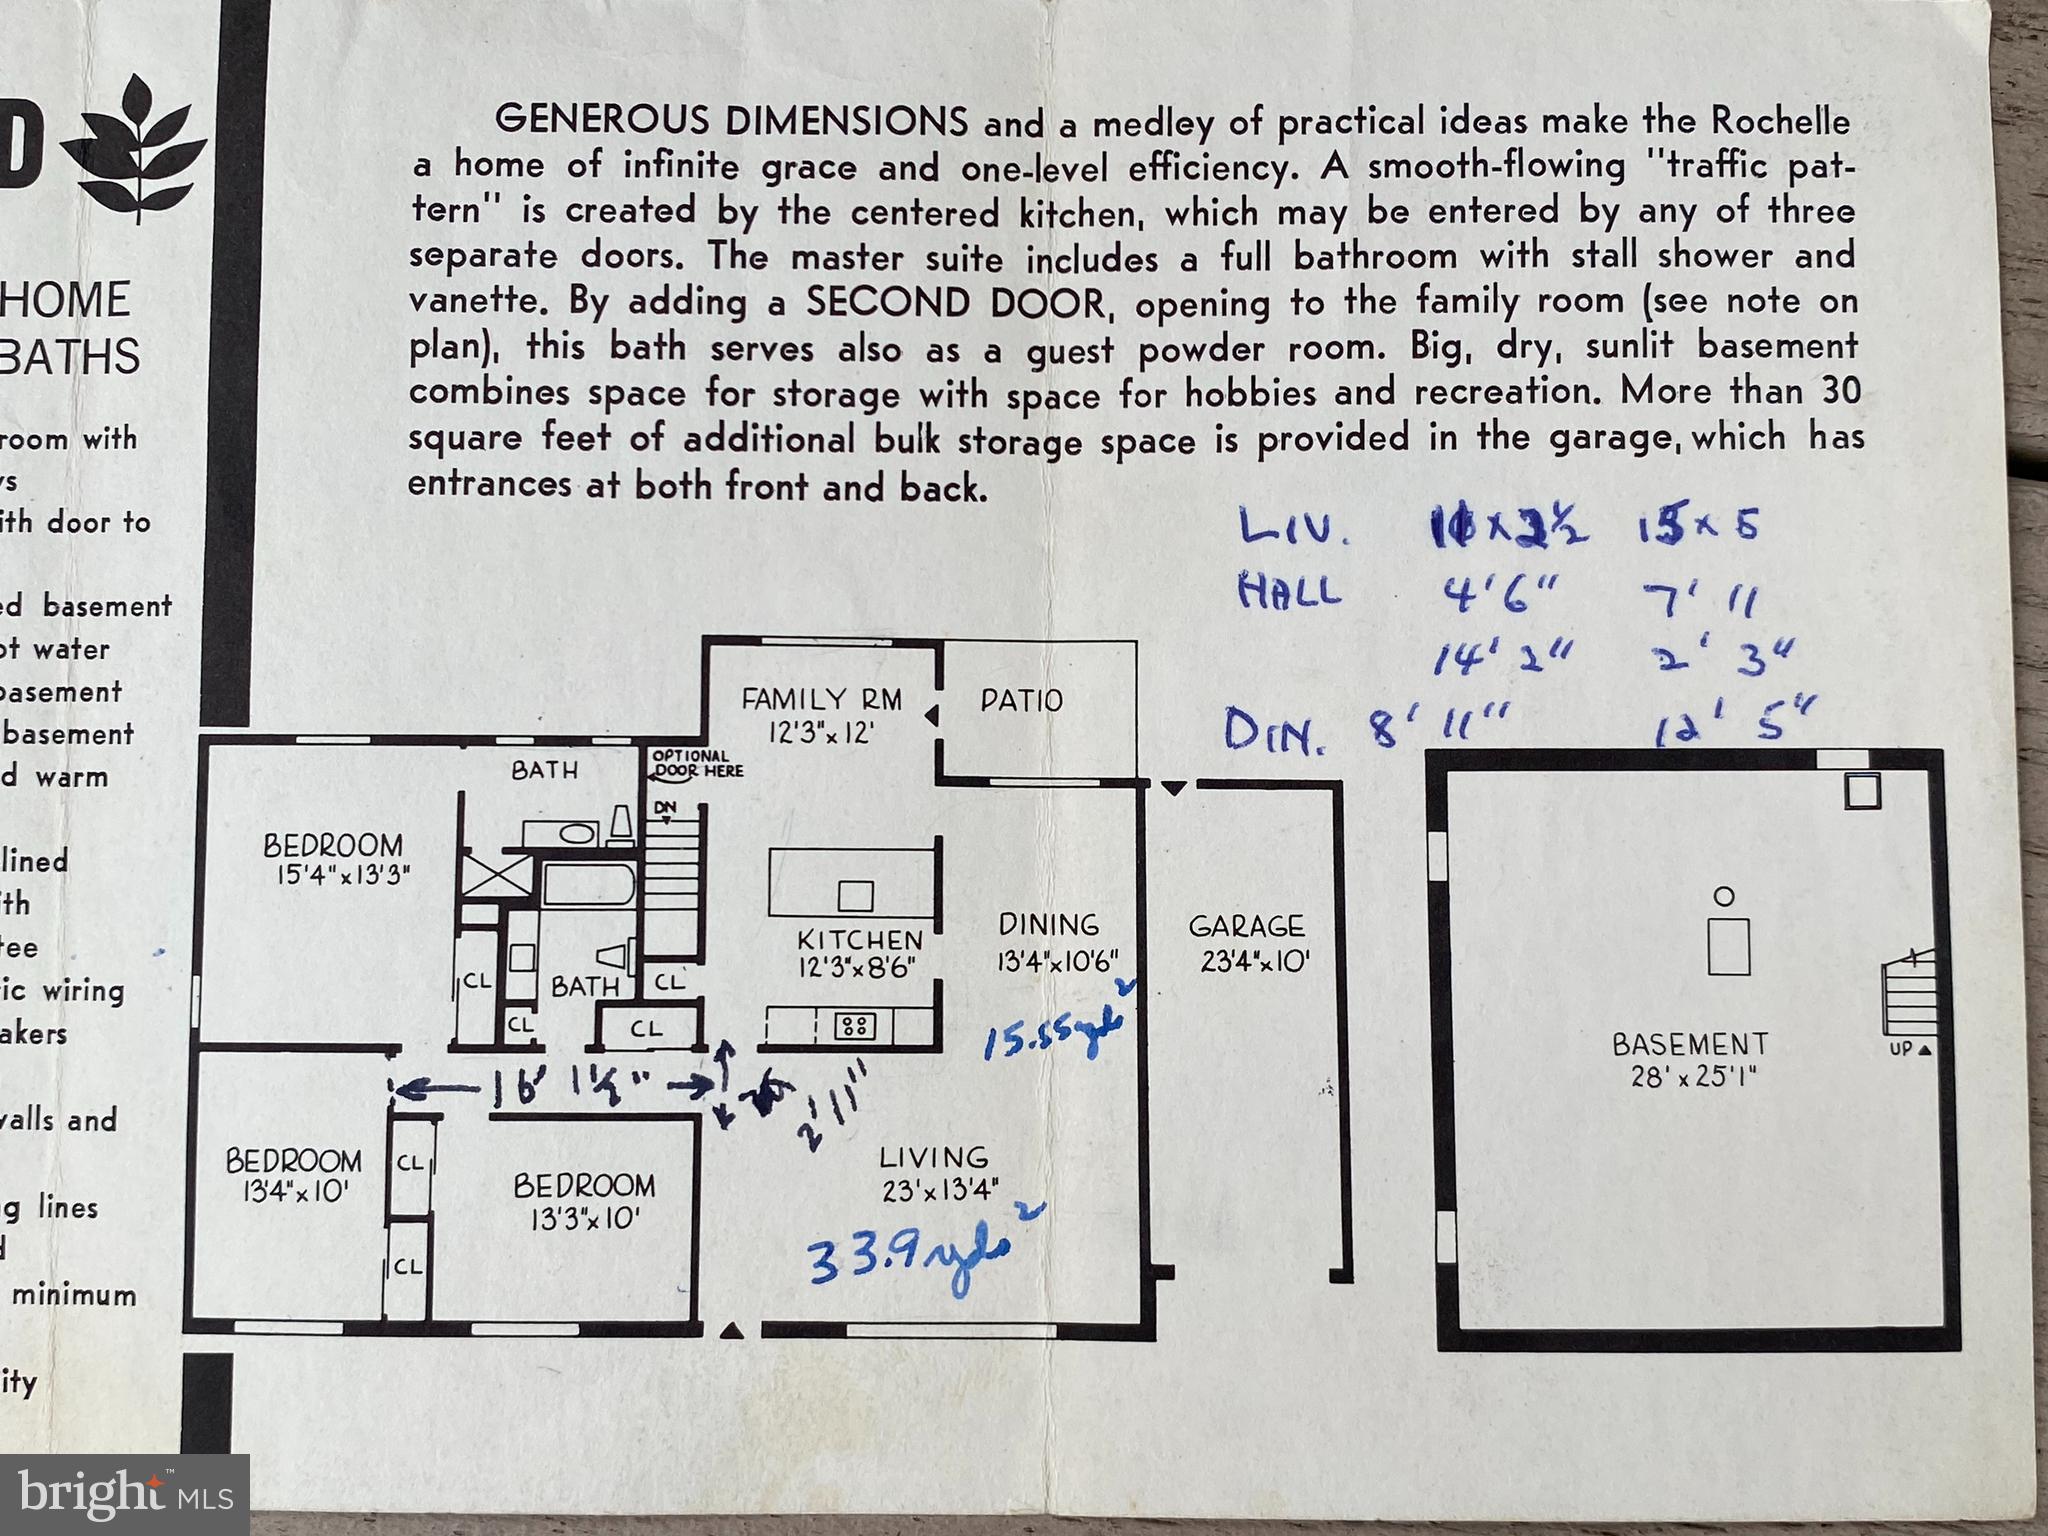 D
HOME
BATHS
room with
ys
ith door to
ed basement
ot water
basement
basement
d warm
lined
ith
tee
ic wiring
akers
walls and
g lines
minimum
ity
GENEROUS DIMENSIONS and a medley of practical ideas make the Rochelle
a home of infinite grace and one-level efficiency. A smooth-flowing "traffic pat-
tern" is created by the centered kitchen, which may be entered by any of three
separate doors. The master suite includes a full bathroom with stall shower and
vanette. By adding a SECOND DOOR, opening to the family room (see note on
plan), this bath serves also as a guest powder room. Big, dry, sunlit basement
combines space for storage with space for hobbies and recreation. More than 30
square feet of additional bulk storage space is provided in the garage, which has
entrances at both front and back.
LIV. x 15 x 5
HALL 4'6" 7' 11
14' 2" 2' 3"
DIN. 8' 11" 12' 5"
FAMILY RM
12'3" x 12'
PATIO
OPTIONAL
DOOR HERE
BATH
DN
BEDROOM
15'4" x 13'3"
CL
CL
BATH
CL
CL
KITCHEN
12'3" x 8'6"
DINING
13'4" x 10'6"
15.55 yds²
GARAGE
23'4" x 10'
BASEMENT
28' x 25'1"
UP
2' 11"
BEDROOM
13'4" x 10'
CL
CL
BEDROOM
13'3" x 10'
LIVING
23' x 13'4"
33.9 yds²
bright™ MLS